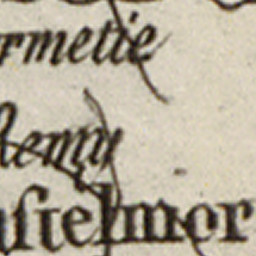 rmetie
Remy
aſtelmor